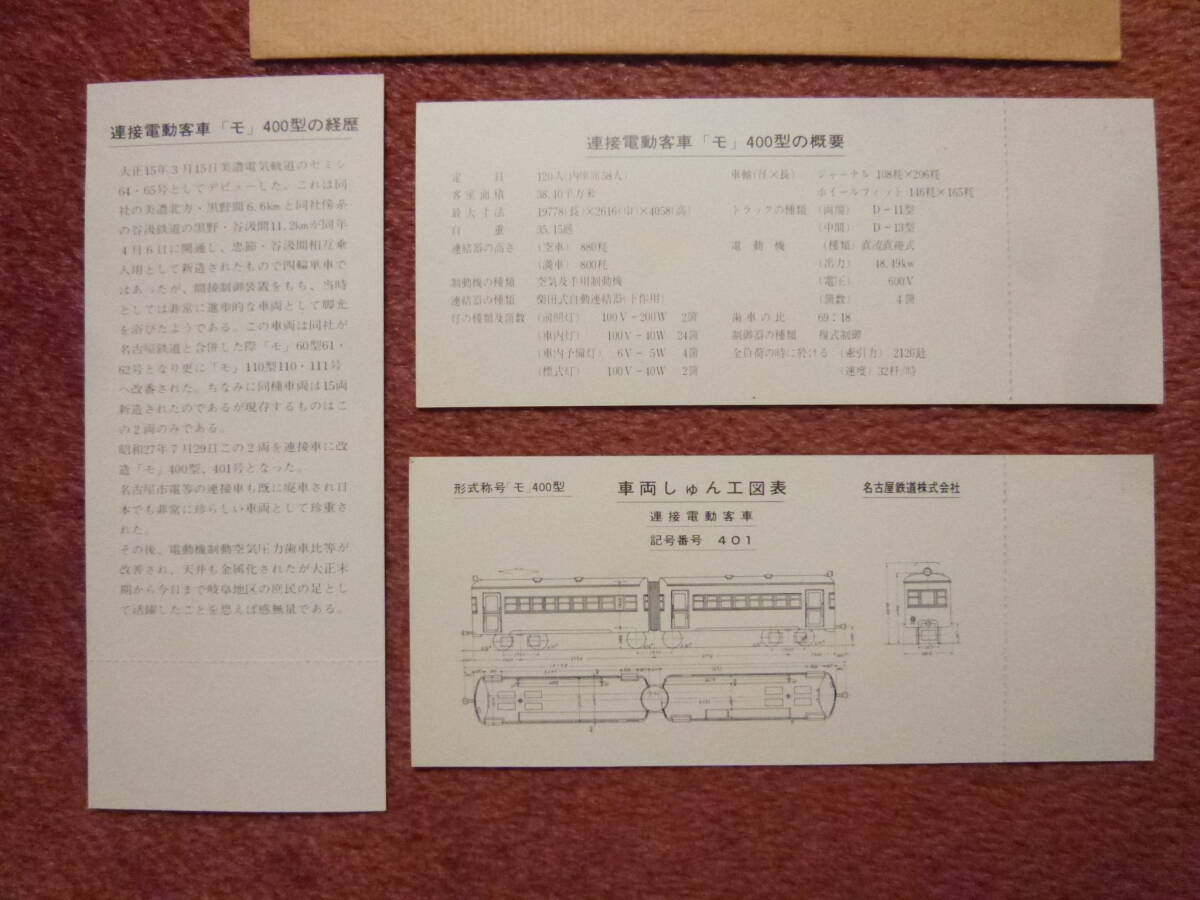 連接電動客車「モ」400型の経歴
大正15年3月15日美濃電気軌道のセミシ
64・65号としてデビューした。これは同
社の美濃北方・黒野間6.6kmと同社傍系
の谷汲鉄道の黒野・谷汲間11.2kmが同年
4月6日に開通し、忠節・谷汲間相互乗
入用として新造されたもので四輪単車で
はあったが、間接制御装置をもち、当時
としては非常に進歩的な車両として脚光
を浴びたようである。この車両は同社が
名古屋鉄道と合併した際「モ」60型61・
62号となり更に「モ」110型110・111号
へ改善された。ちなみに同種車両は15両
新造されたのであるが現存するものはこ
の2両のみである。
昭和27年7月29日この2両を連接車に改
造「モ」400型、401号となった。
名古屋市電等の連接車も既に廃車され日
本でも非常に珍らしい車両として珍重さ
れた。
その後、電動機制動空気圧力歯車比等が
改善され、天井も金属化されたが大正末
期から今日まで岐阜地区の庶民の足とし
て活躍したことを思えば感無量である。
連接電動客車「モ」400型の概要
定員 120人(内座席58人)
客室面積 38.40平方米
最大寸法 19778(長)×2616(巾)×4058(高)
自重 35.15瓲
連結器の高さ (空車) 880粍
(満車) 800粍
制動機の種類 空気及手用制動機
連結器の種類 柴田式自動連結器(下作用)
灯の種類及箇数 (前照灯) 100V-200W 2箇
(車内灯) 100V-40W 24箇
(車内予備灯) 6V-5W 4箇
(標式灯) 100V-40W 2箇
車軸(径×長) ジャーナル 108粍×206粍
ホイールフィット 146粍×165粍
トラックの種類 (両端) D-11型
(中間) D-13型
電動機 (種類) 直流直巻式
(出力) 48.49kw
(電圧) 600V
(箇数) 4箇
歯車の比 69:18
制御器の種類 複式制御
全負荷の時に於ける (牽引力) 2126瓩
(速度) 32粁/時
形式称号「モ」400型
車両しゅん工図表
名古屋鉄道株式会社
連接電動客車
記号番号 401